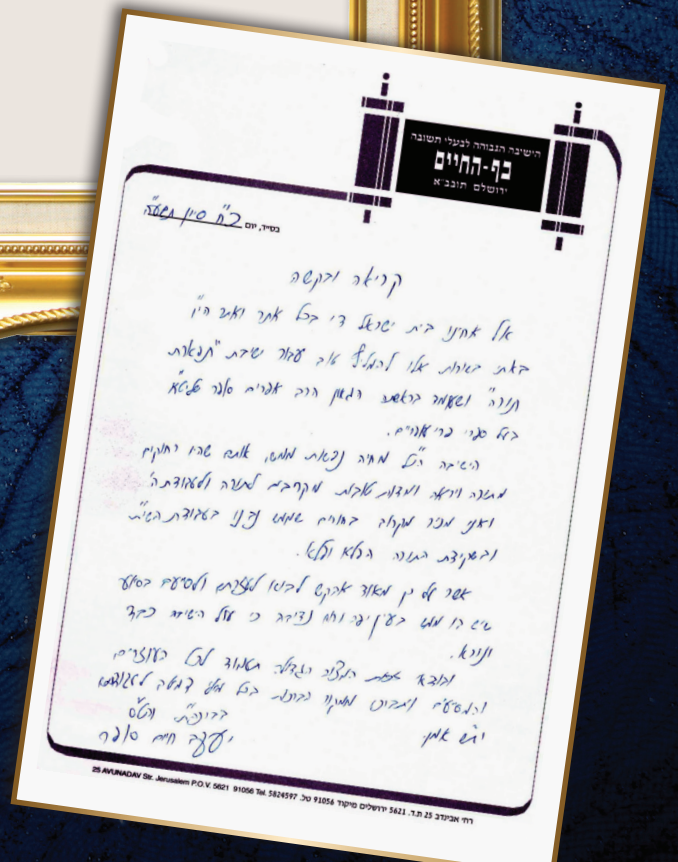 הישיבה הגבוהה לבעלי תשובה
כף-החיים
ירושלם תובב״א
בסייד, יום כ"ח סיון תשע"ה
קריאה ובקשה
אל אחינו בית ישראל די בכל אתר ואתר הי"ו
באתי בשורות אלו להמליץ טוב עבור ישיבת "תפארת
תורה" ושעומד בראשה הגאון הרב אפרים סופר שליט"א
בעל ספרי פרי אפרים.
הישיבה הנ"ל מחיה נפשות ממש, אותם שהיו רחוקים
מתורה ויראה ומדות טובות מקרבים לתורה ולעבודת ה'
ואני מכיר מקרוב בחורים שממש נבנו בעבודת השי"ת
ובשקידת התורה הפלא ופלא.
אשר על כן מאוד אבקש לבוא לעזרתם ולסייעם בסיוע
שיש בו ממש בעין יפה ורוח נדיבה כי עול הישיבה כבד
ונורא.
ובודאי שזאת המצוה הגדולה תעמוד לכל העוזרים
והמסייעים ויתברכו ממקור הברכות בכל מילי דמיטב לעבודתו
ית"ש אמן.
בברכה"ת והט"ס
יעקב חיים סופר
25 AVUNADAV Str. Jerusalem P.O.V. 5621 91056 Tel. 5824597 רחי אבינדב 25 ת.ד. 5621 ירושלים מיקוד 91056 טל.